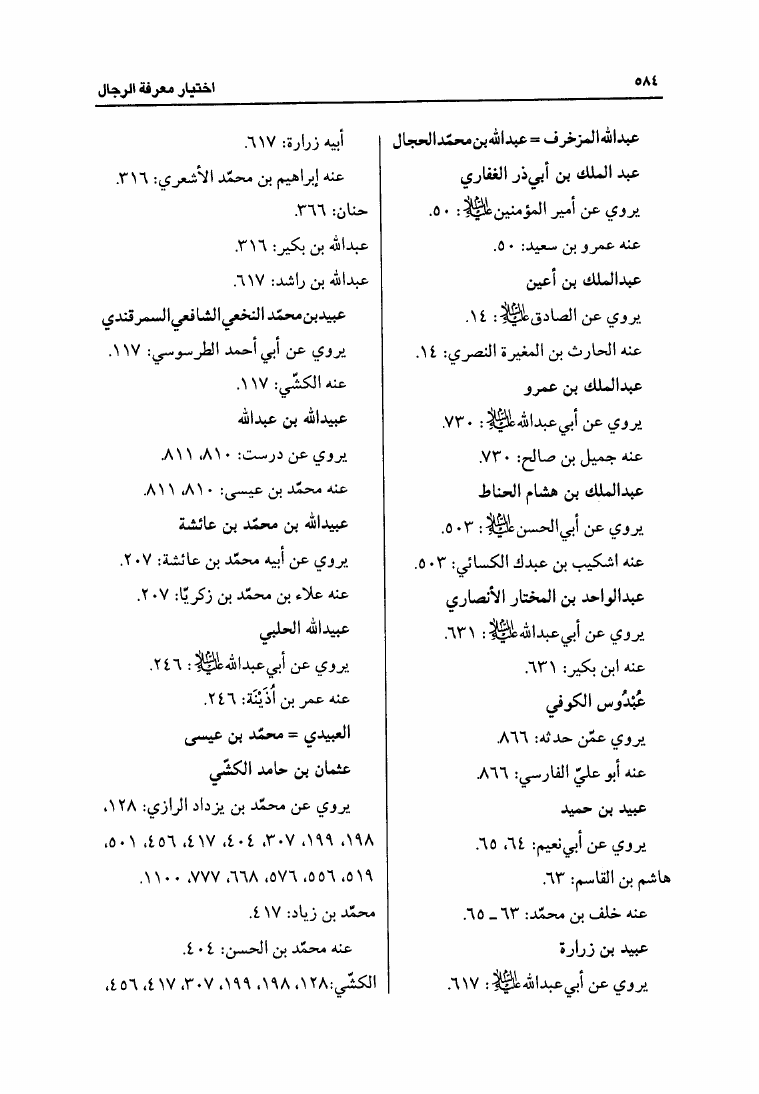 ٥٨٤
اختيار معرفة الرجال
عبدالله المزخرف = عبدالله بن محمّد الحجال
عبد الملك بن أبي‌ذر الغفاري
يروي عن أمير المؤمنين عليه السلام: ٥٠.
عنه عمرو بن سعيد: ٥٠.
عبدالملك بن أعين
يروي عن الصادق عليه السلام: ١٤.
عنه الحارث بن المغيرة النصري: ١٤.
عبدالملك بن عمرو
يروي عن أبي عبدالله عليه السلام: ٧٣٠.
عنه جميل بن صالح: ٧٣٠.
عبدالملك بن هشام الحناط
يروي عن أبي الحسن عليه السلام: ٥٠٣.
عنه اشكيب بن عبدك الكسائي: ٥٠٣.
عبدالواحد بن المختار الأنصاري
يروي عن أبي عبدالله عليه السلام: ٦٣١.
عنه ابن بكير: ٦٣١.
عُبْدُوس الكوفي
يروي عمّن حدثه: ٨٦٦.
عنه أبو عليّ الفارسي: ٨٦٦.
عبيد بن حميد
يروي عن أبي نعيم: ٦٤، ٦٥.
هاشم بن القاسم: ٦٣.
عنه خلف بن محمّد: ٦٣ ـ ٦٥.
عبيد بن زرارة
يروي عن أبي عبدالله عليه السلام: ٦١٧.
أبيه زرارة: ٦١٧.
عنه إبراهيم بن محمّد الأشعري: ٣١٦.
حنان: ٣٦٦.
عبدالله بن بكير: ٣١٦.
عبدالله بن راشد: ٦١٧.
عبيد بن محمّد النخعي الشافعي السمرقندي
يروي عن أبي أحمد الطرسوسي: ١١٧.
عنه الكشّي: ١١٧.
عبيدالله بن عبدالله
يروي عن درست: ٨١٠، ٨١١.
عنه محمّد بن عيسى: ٨١٠، ٨١١.
عبيدالله بن محمّد بن عائشة
يروي عن أبيه محمّد بن عائشة: ٢٠٧.
عنه علاء بن محمّد بن زكريّا: ٢٠٧.
عبيدالله الحلبي
يروي عن أبي عبدالله عليه السلام: ٢٤٦.
عنه عمر بن أُذَيْنَة: ٢٤٦.
العبيدي = محمّد بن عيسى
عثمان بن حامد الكشّي
يروي عن محمّد بن يزداد الرازي: ١٢٨،
١٩٨، ١٩٩، ٣٠٧، ٤٠٤، ٤١٧، ٤٥٦، ٥٠١،
٥١٩، ٥٥٦، ٥٧٦، ٦٦٨، ٧٧٧، ١١٠٠.
محمّد بن زياد: ٤١٧.
عنه محمّد بن الحسن: ٤٠٤.
الكشّي: ١٢٨، ١٩٨، ١٩٩، ٣٠٧، ٤١٧، ٤٥٦،